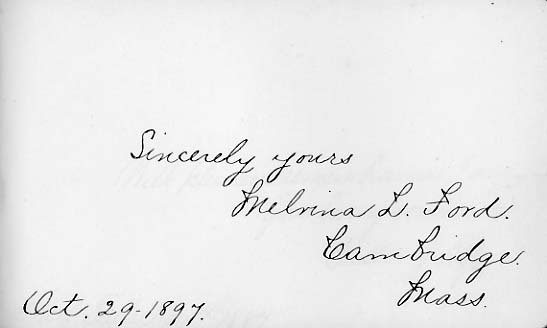 Sincerely yours
Melvina L. Ford.
Cambridge.
Mass.
Oct. 29-1897.